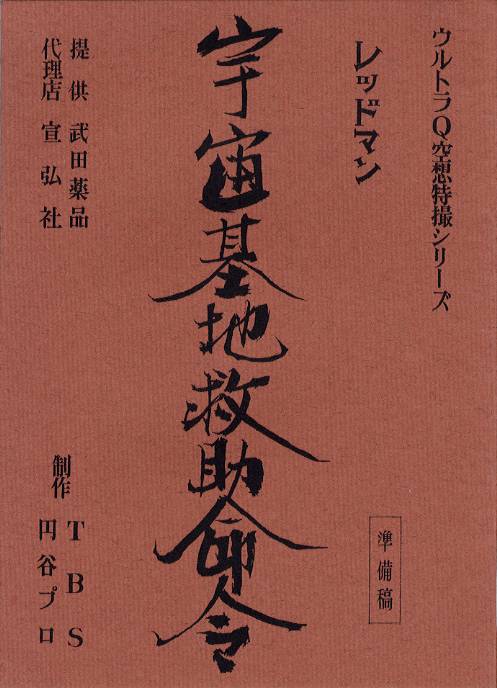 ウルトラQ空想特撮シリーズ
レッドマン
準備稿
宇宙基地救助命令
提供 武田薬品
代理店 宣弘社
制作 TBS
円谷プロ